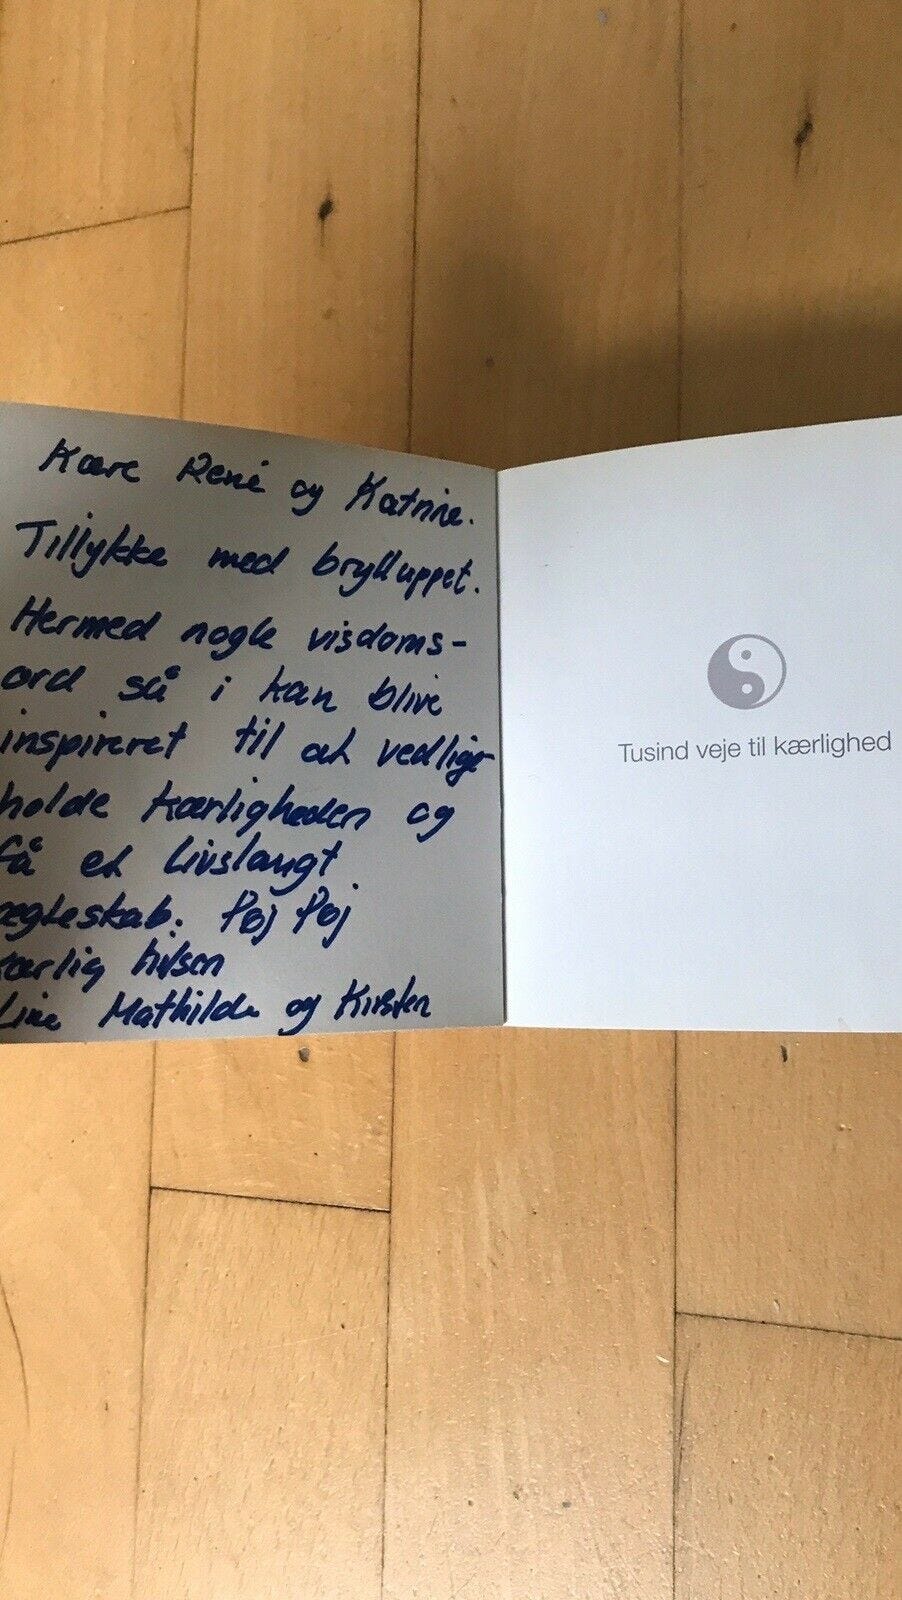 Kære René og Katrine.
Tillykke med brylluppet.
Hermed nogle visdoms-
ord så i kan blive
inspireret til at vedlige-
holde kærligheden og
få et livslangt
ægteskab. Pøj Pøj
kærlig hilsen
Line Mathilde og Kirsten
Tusind veje til kærlighed